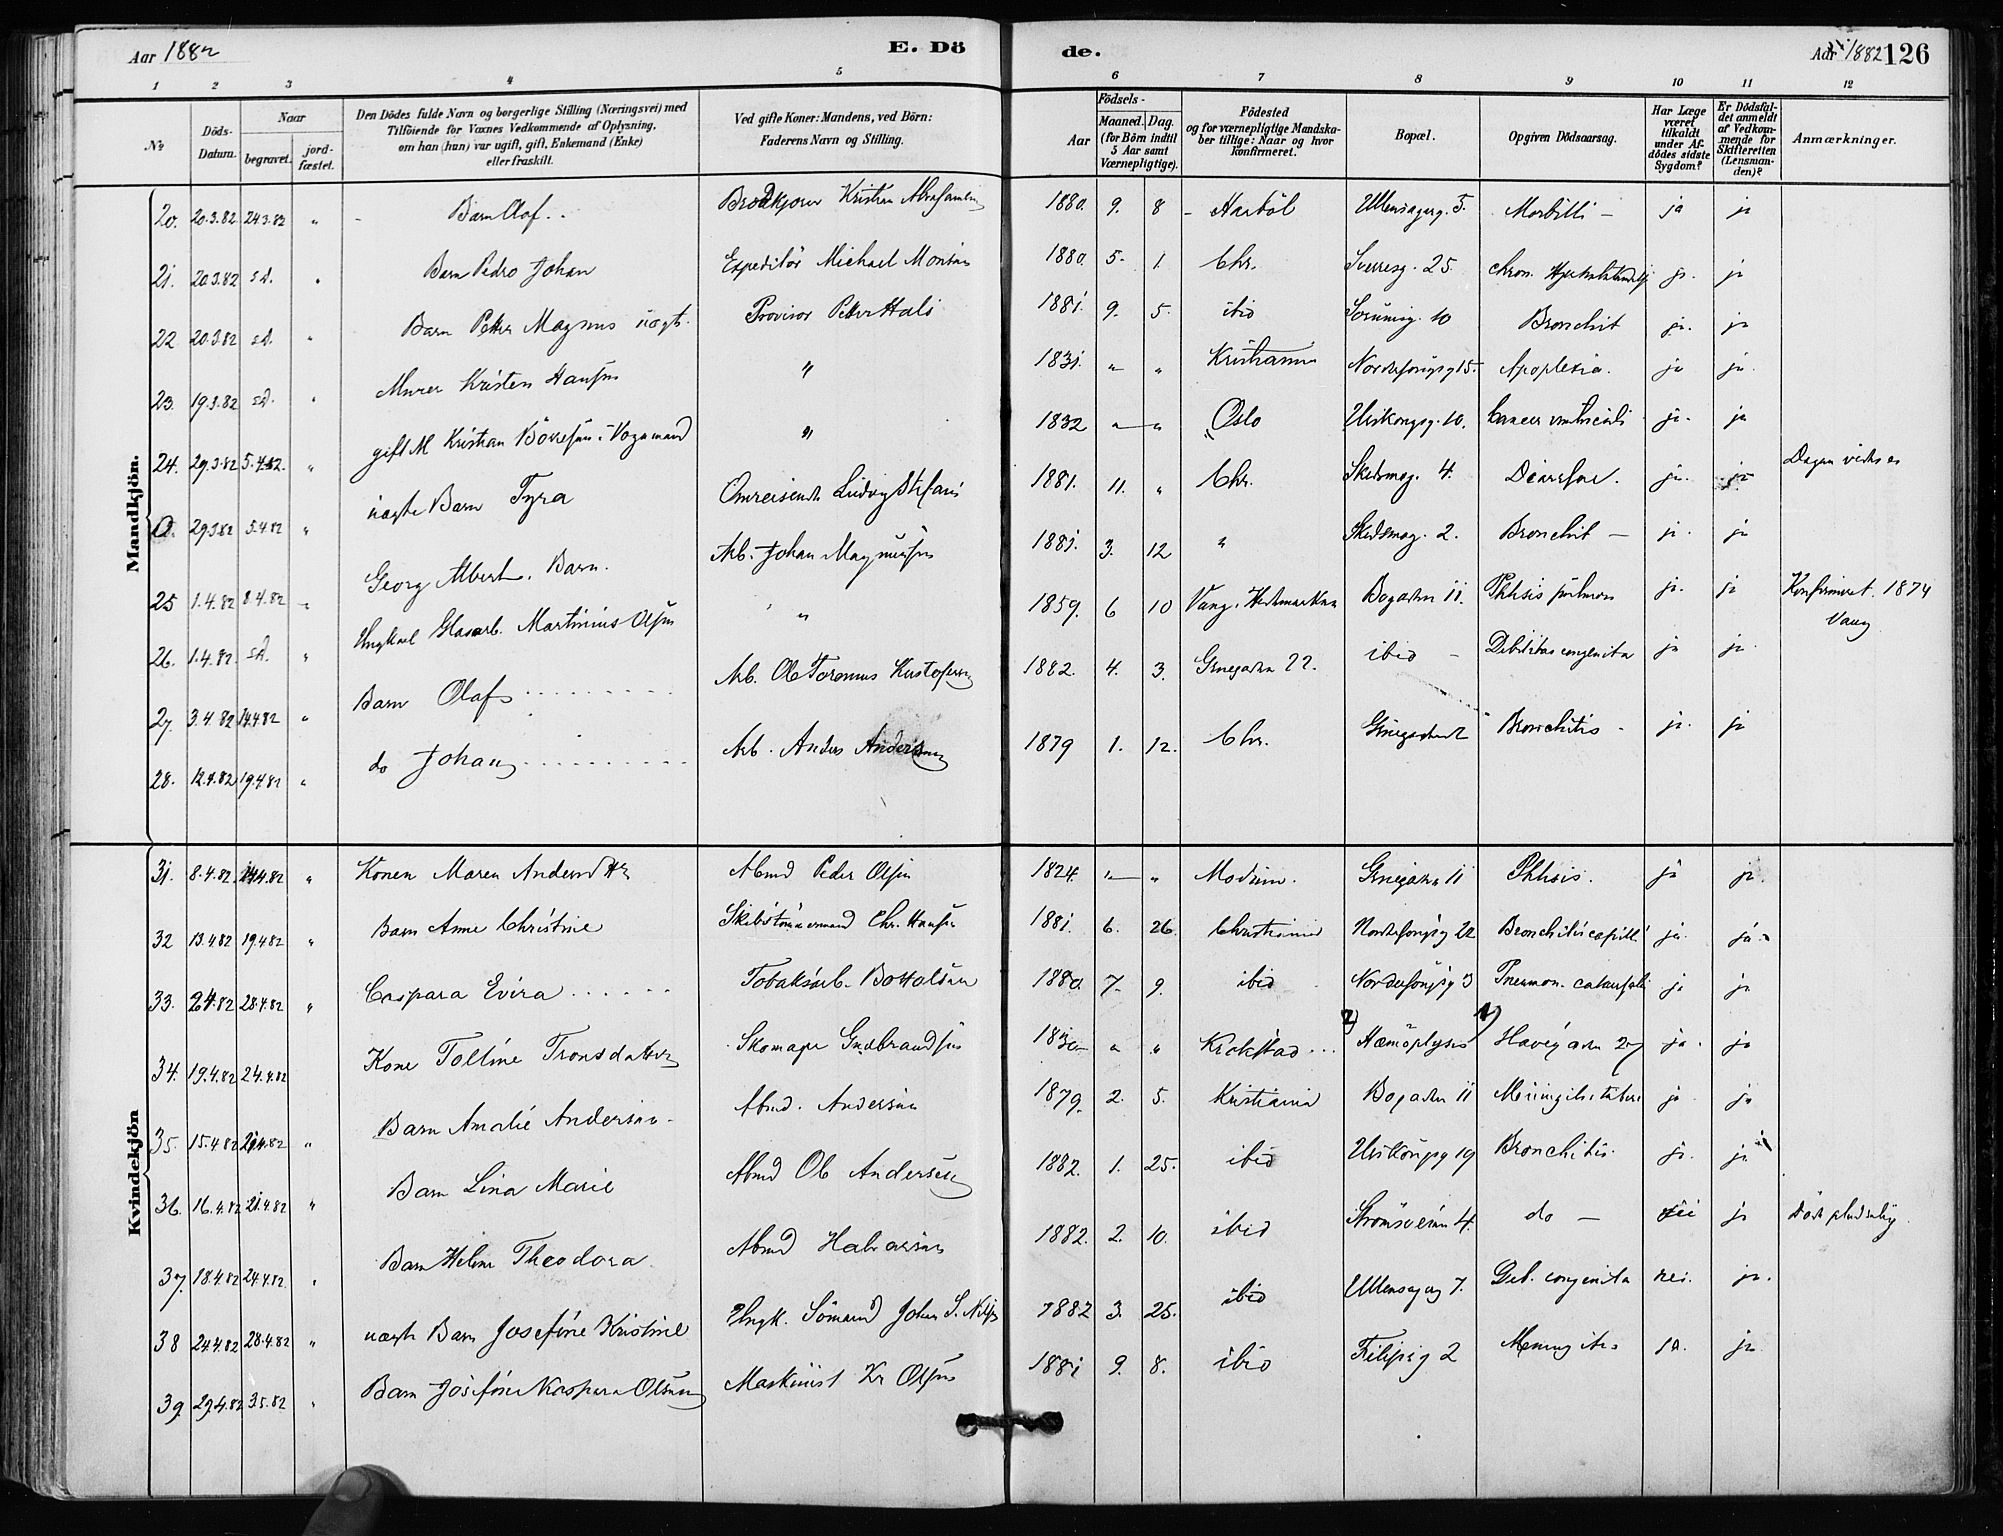 Aar 1882 E. Dö de. Aar 1882 126
1 2 3 4 5 6 7 8 9 10 11 12
No Döds-Datum. Naar begravet. jord-fæstet. Den Dödes fulde Navn og borgerlige Stilling (Næringsvei) med Tilföiende for Voxnes Vedkommende af Oplysning, om han (hun) var ugift, gift, Enkemand (Enke) eller fraskilt. Ved gifte Koner: Mandens, ved Börn: Faderens Navn og Stilling. Födsels- Aar Maaned. Dag. (for Börn indtil 5 Aar samt Værnepligtige). Födested og for værnepligtige Mandskaber tillige: Naar og hvor konfirmeret. Bopæl. Opgiven Dödsaarsag. Har Læge været tilkaldt under Afdödes sidste Sygdom? Er Dödsfaldet anmeldt af Vedkommende for Skifteretten (Lensmanden)? Anmærkninger.
Mandkjön.
20. 20.3.82 24.3.82 " Barn Olaf Brödkjører Kristian Abrahamsen 1880. 9. 8 Ullensagerg. 5. Morbilli ja ja
21. 20.3.82 s.d. " Barn Pedro Johan Expeditör Michael Monsen 1880. 5. 1. Chr. Sverresg. 25 chron. ja ja
22 20.3.82 s.d. " Barn Petter Magnus uægte Provisor Petter Hals 1881. 9. 5. ibid Sörumsg. 10 Bronchit ja. ja
23. 19.3.82 s.d. " Murer Kristen Hansen " 1831. " " Kristiania 15. Apoplexia. ja ja.
24. 29.3.82 5.4.82. " gift M Kristian " 1832 " " Oslo Urskougsg. 10. Cancer ventriculi ja. ja
0. 29.3.82 5.4.82 " uægte Barn Tyra Omreisende Ludvig 1881. 11. " Chr. Skedsmog. 4. ja. ja Dagen vides ei
25 1.4.82 8.4.82 " Georg Albert. Barn. Arb. Johan Magnussen 1881. 3. 12 " Skedsmog. 2. Bronchit ja. ja
26. 1.4.82. s.d. " Ungkarl Glasarb. Martinius Olsen " 1859. 6 10 Vang. Hedemarken Bogaden 11. Phthisis pulmon ja. ja Konfirmeret 1874 Vang
27 3.4.82 14.4.82 " Barn Olaf Arb. Ole 1882. 4. 3. 22. ibid Debilitas congenita ja ja.
28. 12.4.82 19.4.82 " do Johan Arb. Anders Andersen 1879 1. 12. Chr. Bronchitis ja. ja
Kvindekjön
31. 8.4.82. 14.4.82 " Konen Maren Andersdtr Abmd Peder Olsen 1824. " " Modum. 11 Phthisis. ja ja.
32 13.4.82 19.4.82 " Barn Anne Christine Skibstömmermand Chr. Hansen 1881. 6. 26. Christiania 22 Bronchitis capill ja. ja.
33. 24.82 28.4.82 " Caspara Evira Tobaksarb. 1880. 7. 9. ibid 3 Pneumon. catarrhalis ja ja
34. 19.4.82 24.4.82 Kone Toline Tronsdatter Skomager Gudbrandsen 1830 " " Krokstad 2) Hæmoptysis 1) 27 ja. ja
35. 15.4.82 21.4.82 " Barn Amalie Andersen Abmd. Andersen 1879. 2. 5. Kristiania Bogaden 11 ja ja
36. 16.4.82 21.4.82 " Barn Lina Marie Abmd Ole Andersen 1882. 1. 25. ibid 19 Bronchitis. ja. ja
37. 18.4.82 24.4.82. " Barn Helene Theodora Abmd Halvorsen 1882. 2. 10. ibid Strömsveien 4. do nei ja Död pludselig.
38 24.4.82 28.4.82 " uægte Barn Josefine Kristine Ungk. Sömand Johan S. 1882 3. 25. ibid 7. Deb. congenita nei. ja.
39. 29.4.82 3.5.82 " Barn Josefine Kaspara Olsen Maskinist Kr Olsen 1881 9. 8. ibid 2 Meningitis ja. ja